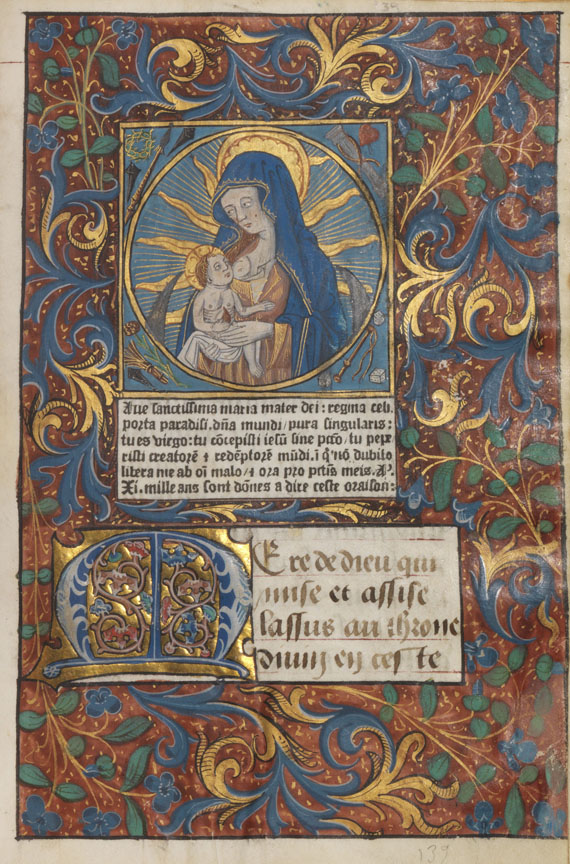 Aue sanctissima maria mater dei: regina celi.
porta paradisi. dn̄a mundi/ pura singularis:
tu es virgo: tu cōcepisti iesū sine pctō/ tu pepe
risti creatorē ⁊ redēptorē mūdi. ī q̄ nō dubito
libera me ab oī malo/ ⁊ ora pro pctīs meis.
Xi. mille ans sont dōnes a dire ceste oraison:
Ere de dieu qui
mise et assise
lassus au throne
diuin en ceste
139